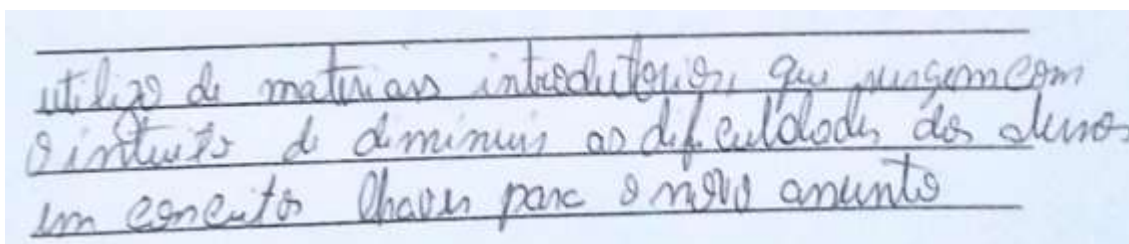 utilizo de materiais introdutorios, que surgem com
o intuito de diminuir as dificuldades dos alunos
em conceitos chaves para o novo assunto